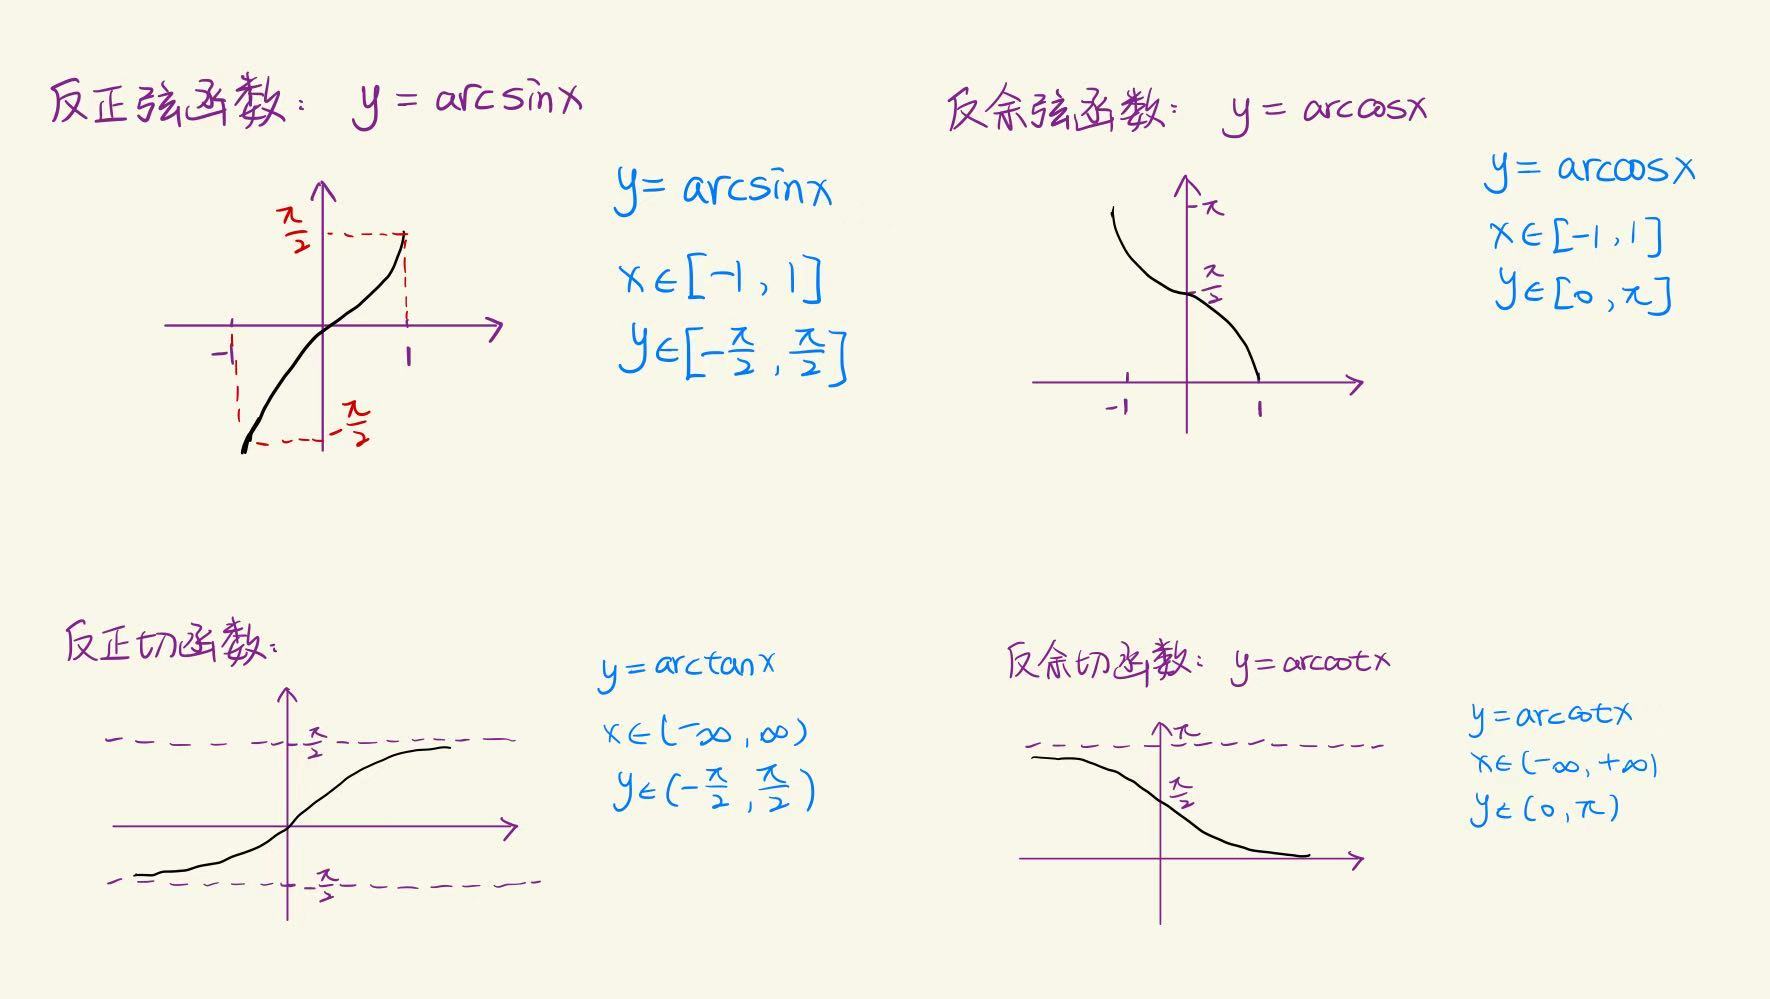 反正弦函数: y = arcsinx
π/2
-1
1
-π/2
y = arcsinx
x∈[-1, 1]
y∈[-π/2, π/2]
反余弦函数: y = arccosx
π
π/2
-1
1
y = arccosx
x∈[-1, 1]
y∈[0, π]
反正切函数:
π/2
-π/2
y = arctanx
x∈(-∞, ∞)
y∈(-π/2, π/2)
反余切函数: y = arccotx
π
π/2
y = arccotx
x∈(-∞, +∞)
y∈(0, π)